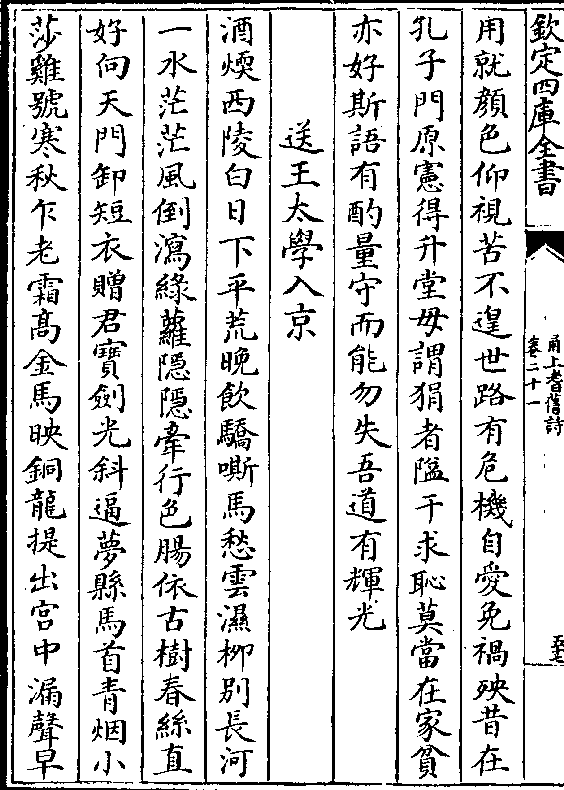 欽定四庫全書
甬上耆舊詩
卷二十一
五七
用就顔色仰視苦不遑世路有危機自愛免禍殃昔在
孔子門原憲得升堂毋謂狷者隘干求恥莫當在家貧
亦好斯語有酌量守而能勿失吾道有輝光
送王太學入京
酒煗西陵白日下平荒晚飲驕嘶馬愁雲濕栁别長河
一水茫茫風倒瀉緑蘿隠隠牽行色腸依古樹春絲直
好向天門卸短衣贈君寳劍光斜逼夢縣馬首青烟小
莎雞號寒秋乍老霜髙金馬映銅龍提出宫中漏聲早